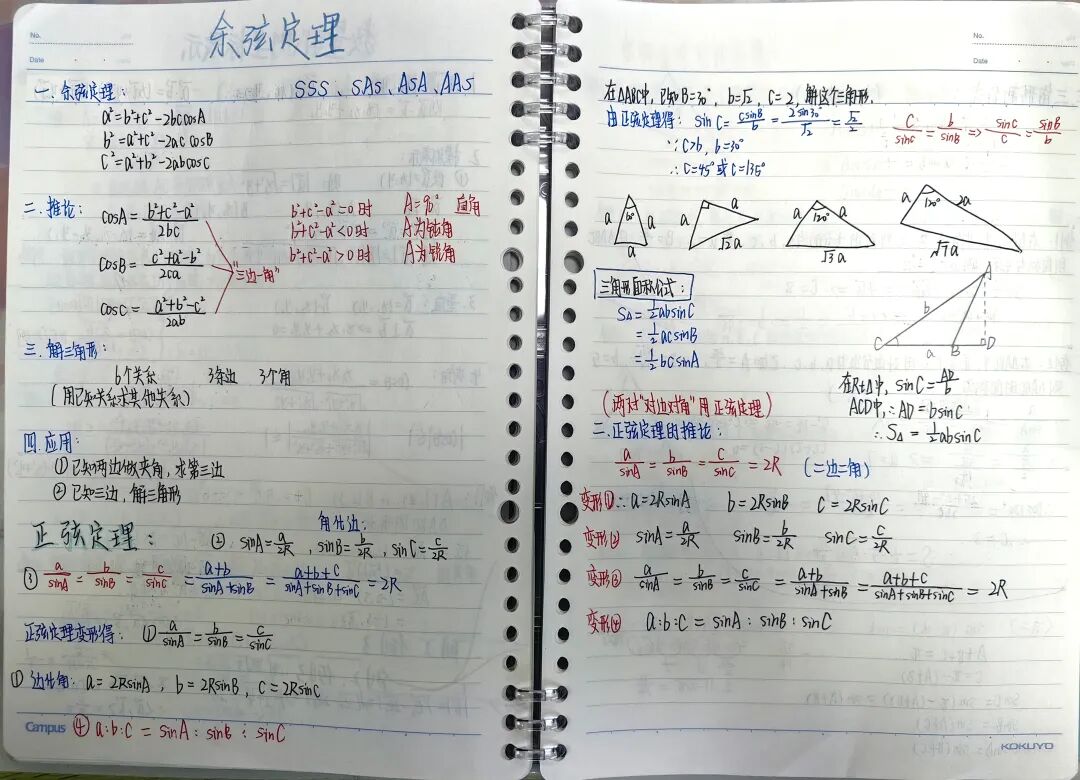 No.
Date
余弦定理
一.余弦定理: SSS、SAS、ASA、AAS
a²=b²+c²-2bccosA
b²=a²+c²-2ac cosB
c²=a²+b²-2abcosC
二.推论:
cosA = (b²+c²-a²)/2bc
cosB = (c²+a²-b²)/2ca
cosC = (a²+b²-c²)/2ab
"三边一角"
b²+c²-a²=0时 A=90° 直角
b²+c²-a²<0时 A为钝角
b²+c²-a²>0时 A为锐角
三.解三角形:
6个关系 3条边 3个角
(用已知关系求其他关系)
四.应用:
①已知两边做夹角,求第三边
②已知三边,解三角形
正弦定理:
角化边:
② sinA=a/2R , sinB=b/2R , sinC=c/2R
③ a/sinA = b/sinB = c/sinC = (a+b)/(sinA+sinB) = (a+b+c)/(sinA+sinB+sinC) = 2R
正弦定理变形得: ① a/sinA = b/sinB = c/sinC
① 边化角: a=2RsinA , b=2RsinB, c=2RsinC
④ a:b:c = sinA : sinB : sinC
Campus
No.
Date
在△ABC中,已知B=30°, b=√2, C=2,解这个三角形.
由正弦定理得: sinC = csinB/b = 2sin30°/√2 = √2/2
∵ C>b, b=30°
∴ C=45°或C=135°
c/sinC = b/sinB => sinC/c = sinB/b
a 60° a a
a a √2a
a 120° a √3a
a 120° 2a √7a
三角形面积公式:
S△ = ½absinC
= ½acsinB
= ½bcsinA
A b C a B D
在Rt△中, sinC = AD/b
ACD中,∴ AD = bsinC
∴ S△ = ½absinC
(两对"对边对角"用正弦定理)
二.正弦定理的推论:
a/sinA = b/sinB = c/sinC = 2R (二边二角)
变形①∴ a=2RsinA b=2RsinB C=2RsinC
变形② sinA=a/2R sinB=b/2R sinC=c/2R
变形③ a/sinA = b/sinB = c/sinC = (a+b)/(sinA+sinB) = (a+b+c)/(sinA+sinB+sinC) = 2R
变形④ a:b:c = sinA : sinB : sinC
KOKUYO